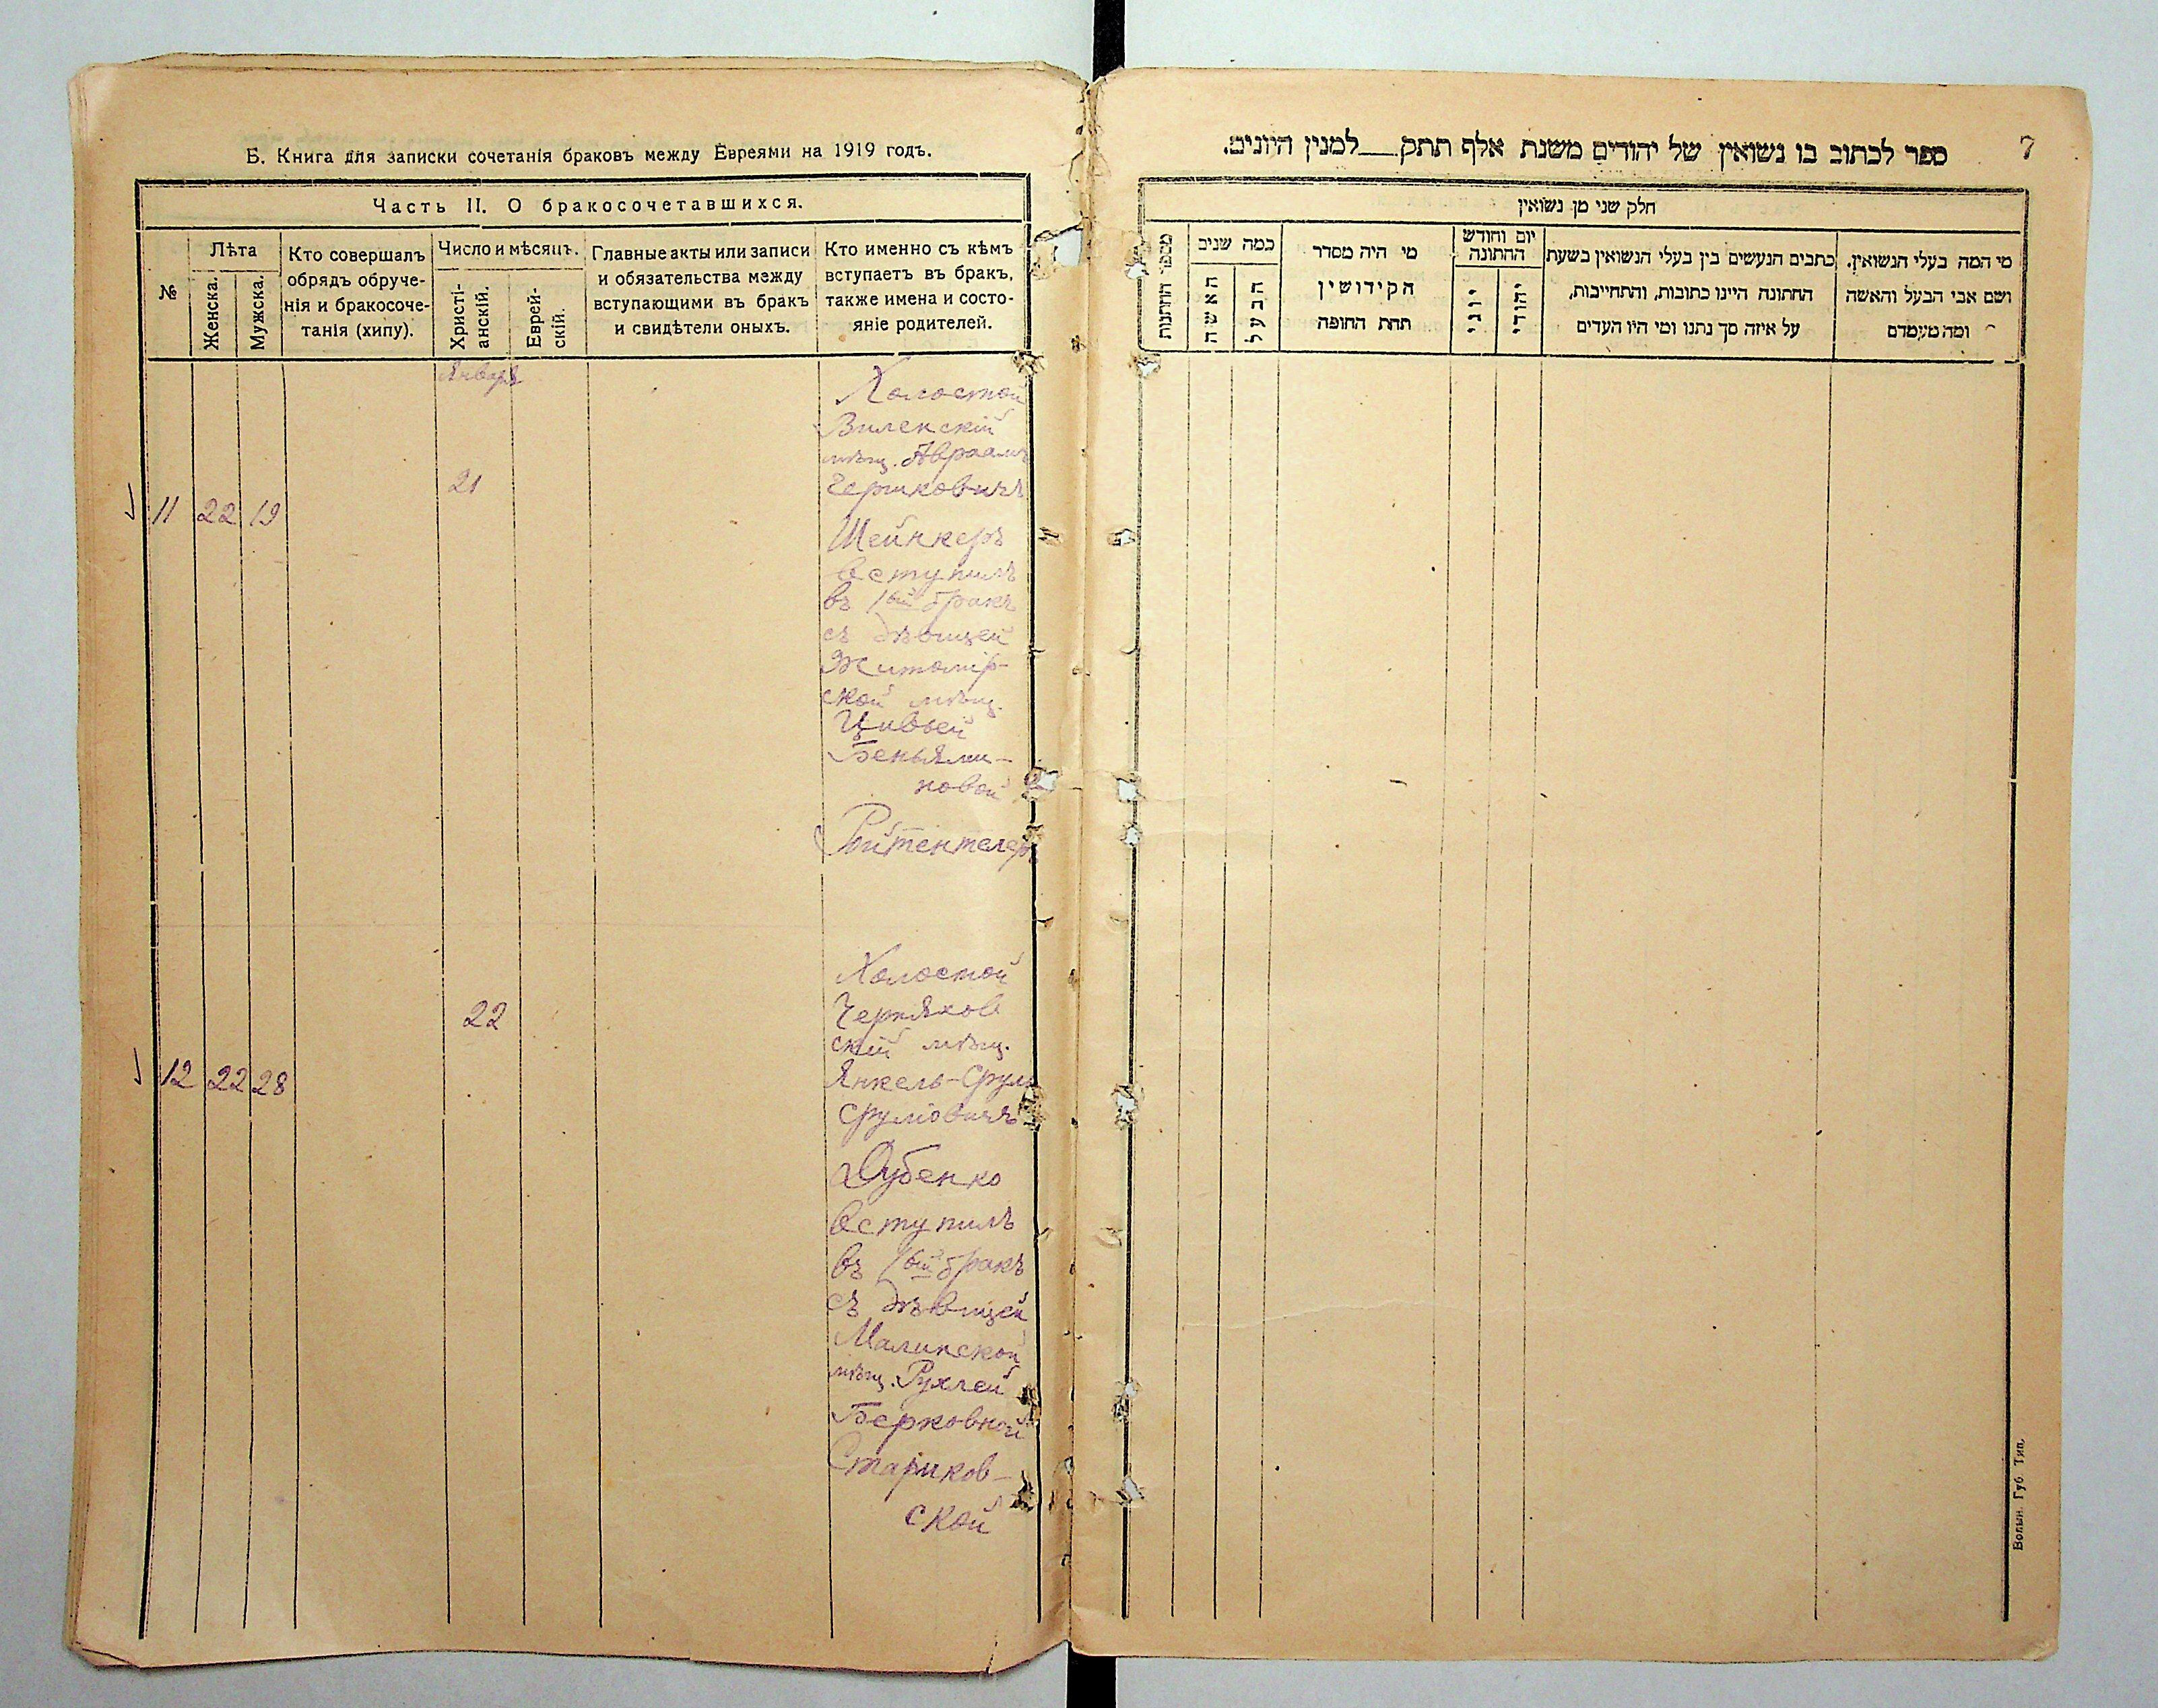 Б. Книга для записки сочетанія браковъ между Евреями на 1919 годъ.
Часть II. О бракосочетавшихся.
№
Лѣта
Женска.
Мужска.
Кто совершалъ
обрядъ обруче-
нія и бракосоче-
танія (хипу).
Число и мѣсяцъ.
Христі-
анскій.
Еврей-
скій.
Главные акты или записи
и обязательства между
вступающими въ бракъ
и свидѣтели оныхъ.
Кто именно съ кѣмъ
вступаетъ въ бракъ,
также имена и состо-
яніе родителей.
Января
11 22 19
21
Холостой
Виленскій
мѣщ. Авраамъ
Гершковичъ
Шейнкеръ
вступилъ
въ 1ый бракъ
съ дѣвицей
Житомір-
ской мѣщ.
Цивьей
Беньями-
новой
Ройтентелер
12 22 28
22
Холостой
Черняхов
скій мѣщ.
Янкель-Срул
Сруліовичъ
Дубенко
вступилъ
въ 1ый бракъ
съ дѣвицей
Малинской
мѣщ. Рухлей
Берковной
Стариков-
ской
7
ספר לכתוב בו נשואין של יהודים משנת אלף תתק__למנין היונים.
חלק שני מן נשואין
מי המה בעלי הנשואין.
ושם אבי הבעל והאשה
ומה מעמדם
כתבים הנעשים בין בעלי הנשואין בשעת
החתונה היינו כתובות, והתחייבות,
על איזה סך נתנו ומי היו העדים
יום וחודש
החתונה
יהודי
יוני
מי היה מסדר
הקידושין
תחת החופה
כמה שנים
הבעל
האשה
מספר החתונות
Волын. Губ. Тип.